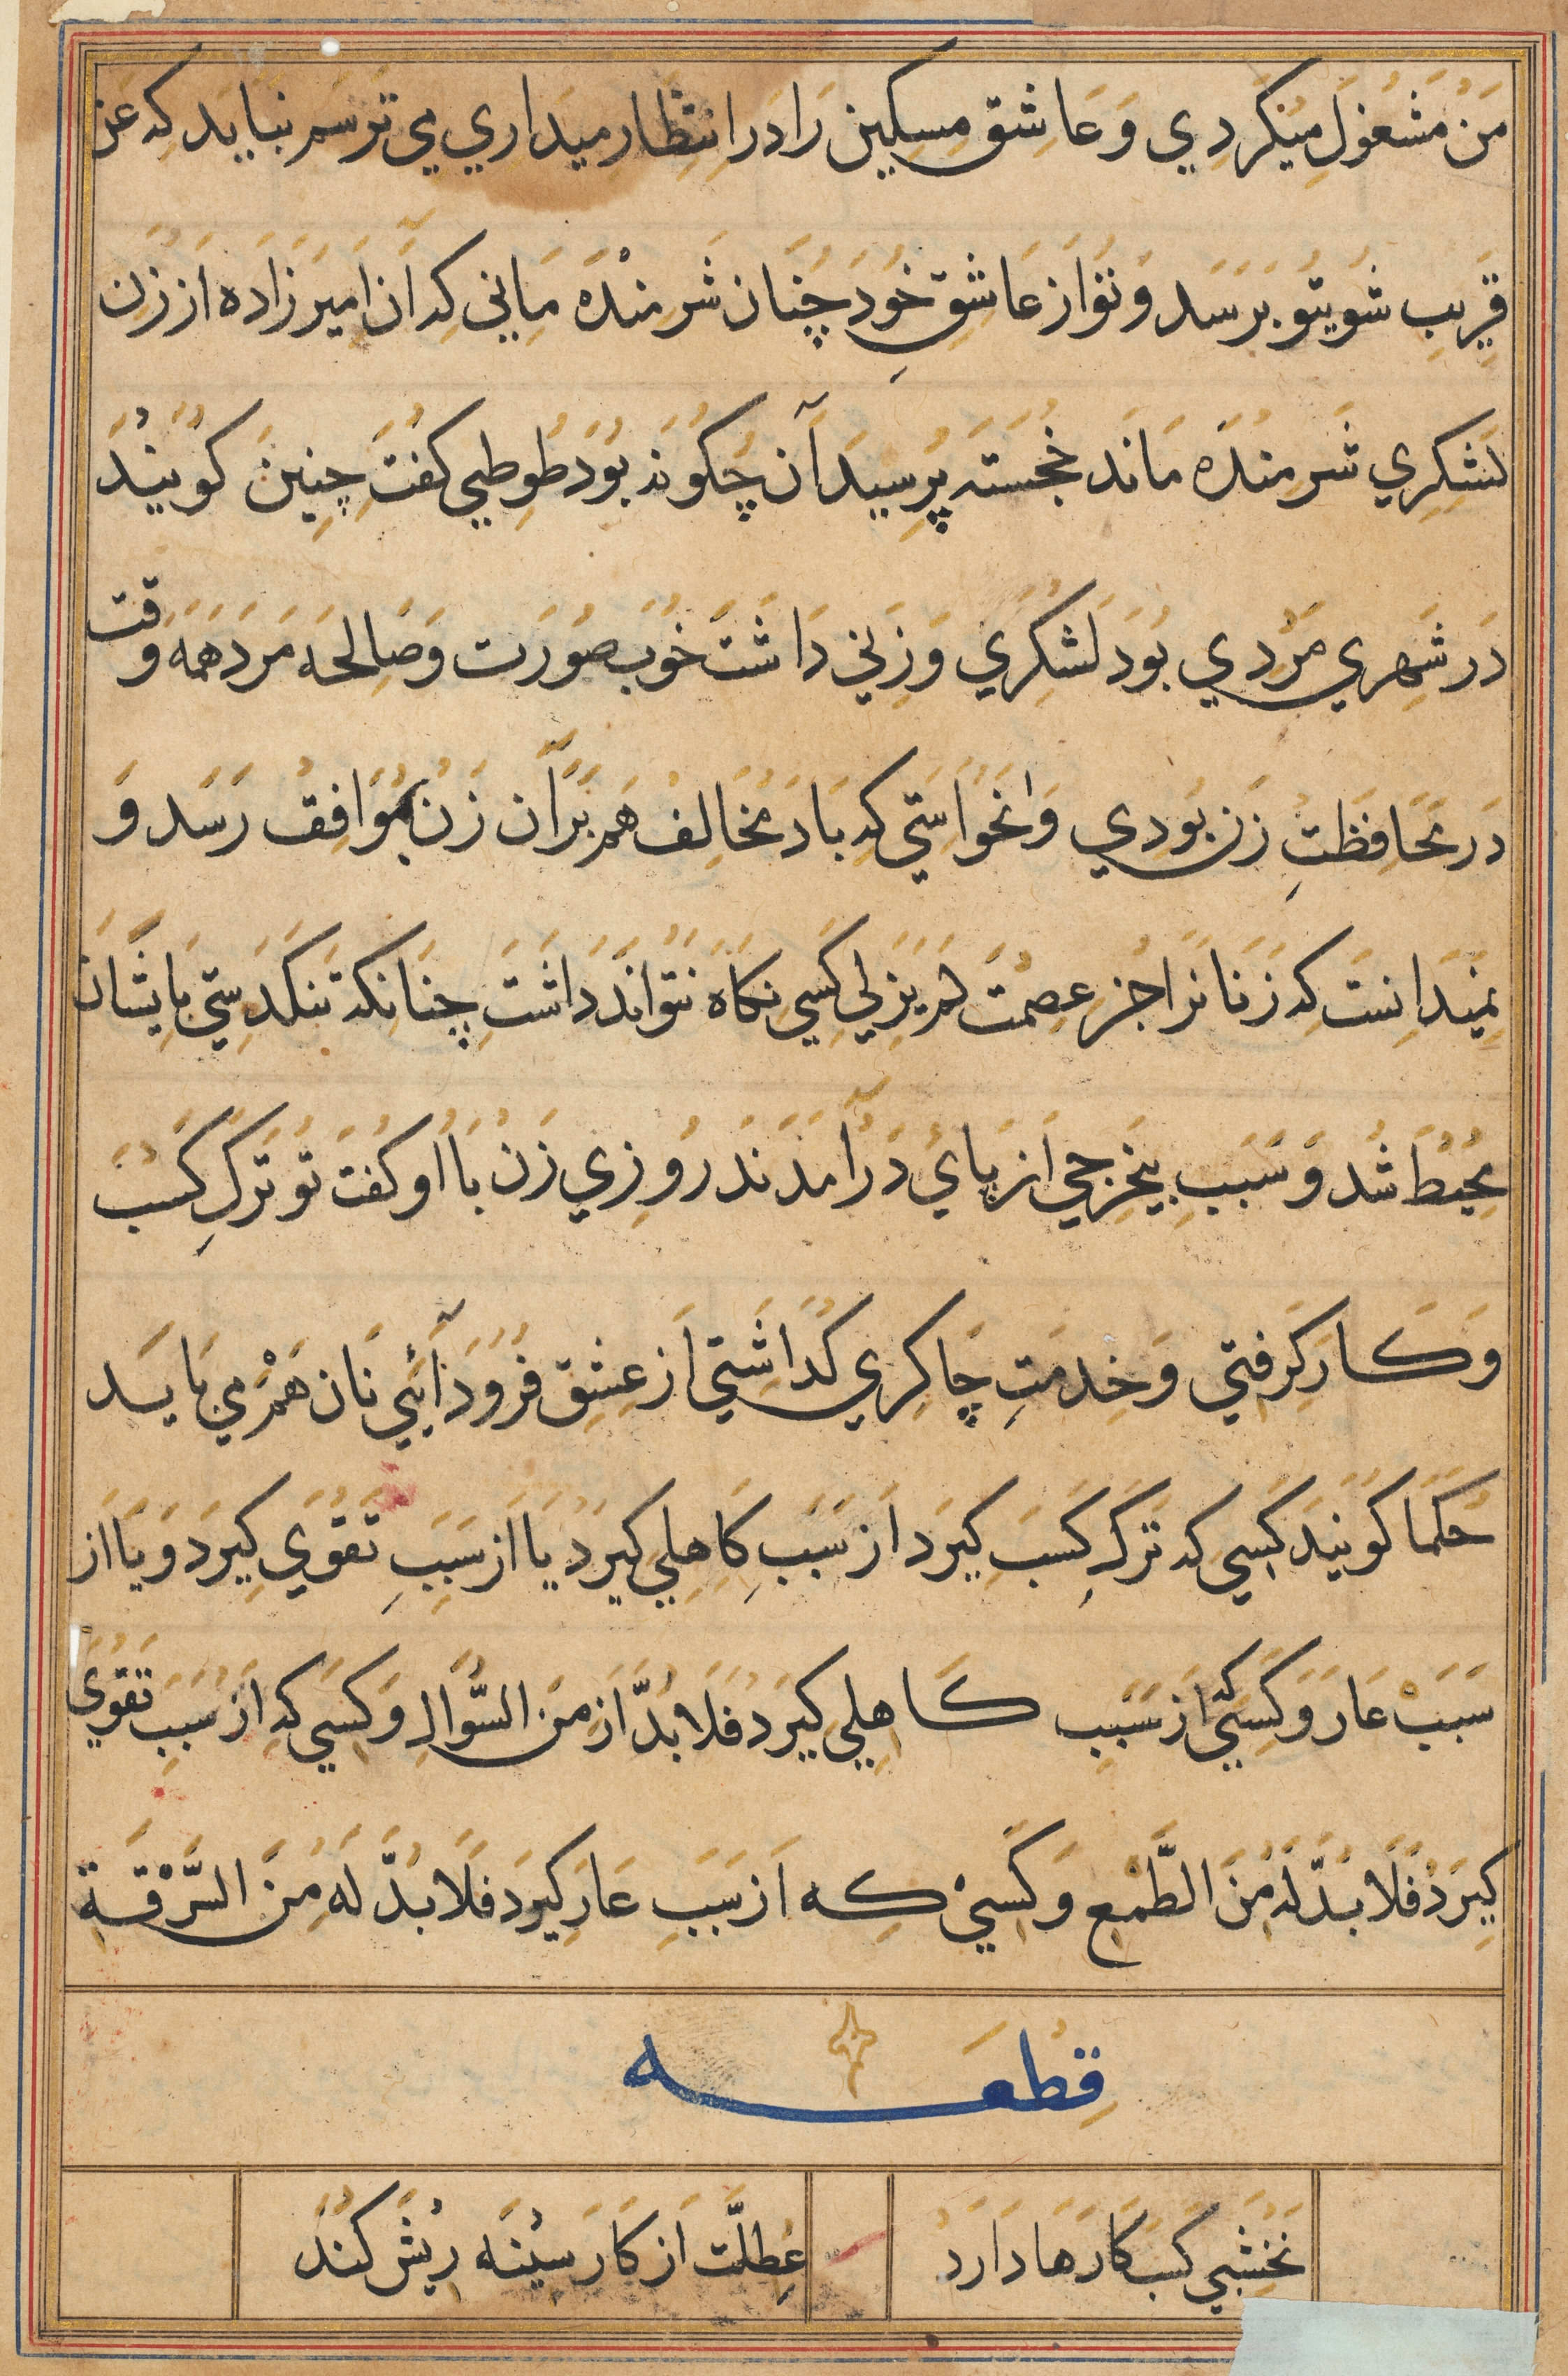 مَن مَشغولِ میکردي وَ عَاشق مِسکین رَا دَر اِنتِظار میدَاري مي ترسم نبَاید کِه عَن
قَرِیبِ شویتو بَرسَد وَ تو از عَاشِقِ خود چنَان شَرمنْدَه مَاني کِه آن اَمیر زَادَه اَز زَن
لَشکِري شَرمندَه مَاند خجستَه پرسیدَ آن چکونَه بود طوطي کفتَ چنِین کویندَ
دَر شَهري مَرْدي بودَ لَشکَري وَ زَني دَاشتَ خوب صورَت وَ صَالِحَه مَرد هَمَه وَقت
دَر محَافِظَتِ زَن بودي وَ نخوَاستي کِه بَاد مخَالِف هَم بَرآن زَن موَافِق رَسَد وَ
نمیدَانِستَ کِه زَنَانرَا جز عِصمَت لَم یزلي کَسي نِکَاه نتوَاند دَاشتَ چنَانکه تنکدَستي بَایشَان
محیط شد وَ سَبَبِ بیخرجي اَز پَاي دَرآمدَند روزي زَن بَا او کفت تو تَرکِ کَسب
وَ کَار کَرفتي وَ خِدمَتِ چَاکِري کذَاشتي اَز عِشقِ فرود آئي نَان هَمْ مي بَایَد
حکَمَا کویندَ کَسي که تَرکِ کَسَب کیرَد اَز سَبَبِ کَاهِلي کیرَد یَا اَز سَبَبِ تَقوي کِیرَد وَ یَا اَز
سَبَبْ عَار وَ کَسي کِه اَز سَبَبِ کَاهِلي کیرَد فَلَا بدَّ از مِنَ السّوَالِ وَ کَسي کِه اَز سَبَبِ تَقوي
کِیرَد فَلَا بدَّ لَه مِنَ الطَّمَعِ وَ کَسيْ کِه اَز سَبَبِ عَار کِیرَد فَلَا بدَّ لَه مِنَ السَّرْقَةِ
قِطعَه
نخشبي کَسب کَارهَا دَارَد
عطلَّت اَز کَار سینَه ریش کنَد